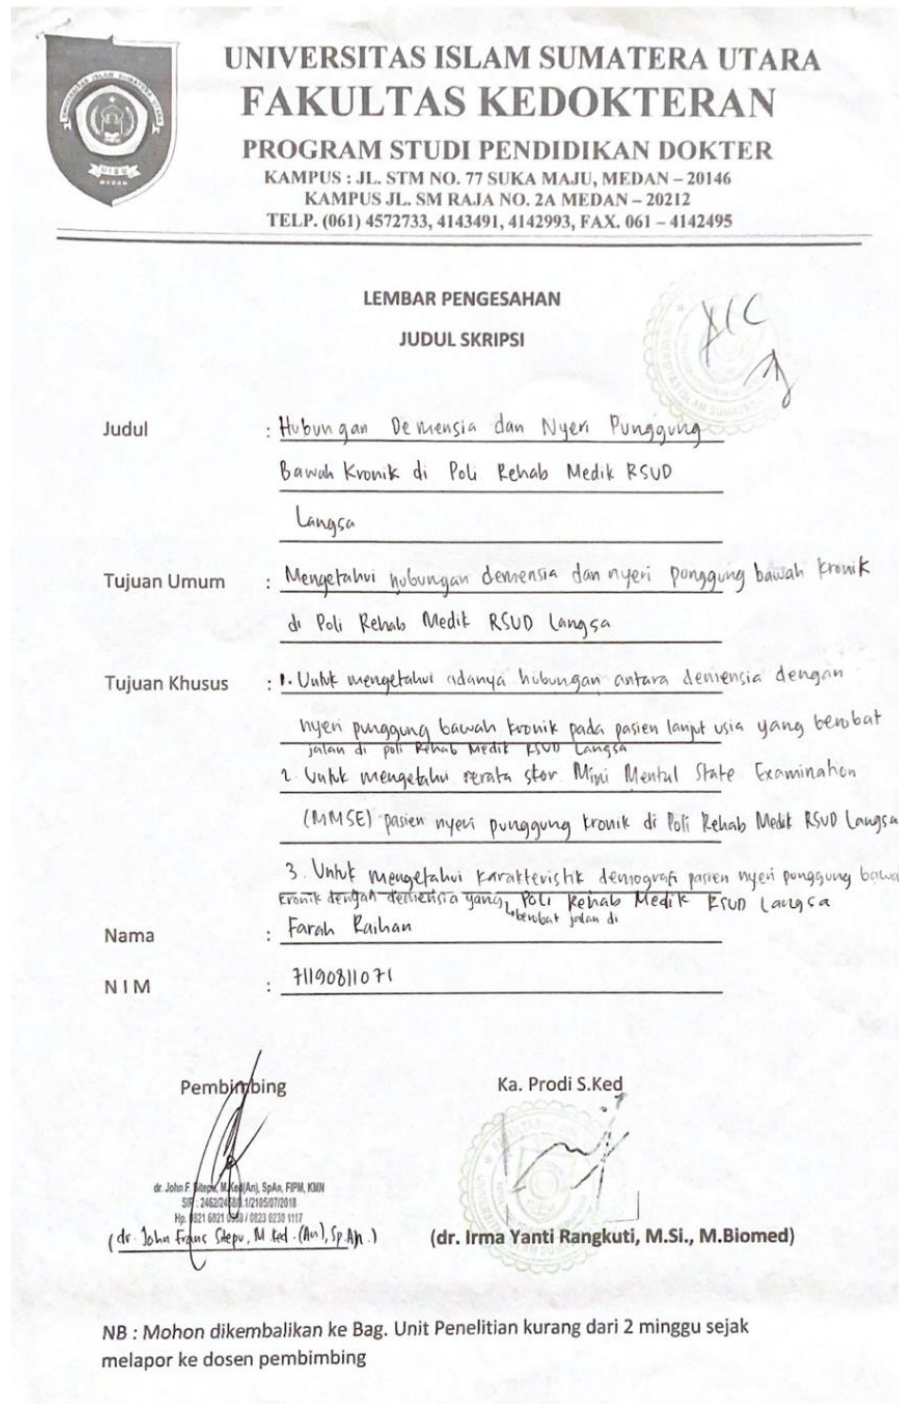 UNIVERSITAS ISLAM SUMATERA UTARA
FAKULTAS KEDOKTERAN
PROGRAM STUDI PENDIDIKAN DOKTER
KAMPUS : JL. STM NO. 77 SUKA MAJU, MEDAN – 20146
KAMPUS JL. SM RAJA NO. 2A MEDAN – 20212
TELP. (061) 4572733, 4143491, 4142993, FAX. 061 – 4142495
UISU
MEDAN
LEMBAR PENGESAHAN
JUDUL SKRIPSI
Judul : Hubungan Demensia dan Nyeri Punggung
Bawah Kronik di Poli Rehab Medik RSUD
Langsa
Tujuan Umum : Mengetahui hubungan demensia dan nyeri punggung bawah kronik
di Poli Rehab Medik RSUD Langsa
Tujuan Khusus : 1. Untuk mengetahui adanya hubungan antara demensia dengan
nyeri punggung bawah kronik pada pasien lanjut usia yang berobat
jalan di poli Rehab Medik RSUD Langsa
2. Untuk mengetahui rerata skor Mini Mental State Examination
(MMSE) pasien nyeri punggung kronik di Poli Rehab Medik RSUD Langsa
3. Untuk mengetahui karakteristik demografi pasien nyeri punggung bawa
kronik dengan demensia yang Poli Rehab Medik RSUD Langsa
berobat jalan di
Nama : Farah Raihan
N I M : 71190811071
Pembimbing
Ka. Prodi S.Ked
dr. John F. Sitepu, M.Ked(An), SpAn, FIPM, KMN
(dr. John Frans Sitepu, M.Ked.(An), Sp.An.)
(dr. Irma Yanti Rangkuti, M.Si., M.Biomed)
NB : Mohon dikembalikan ke Bag. Unit Penelitian kurang dari 2 minggu sejak
melapor ke dosen pembimbing